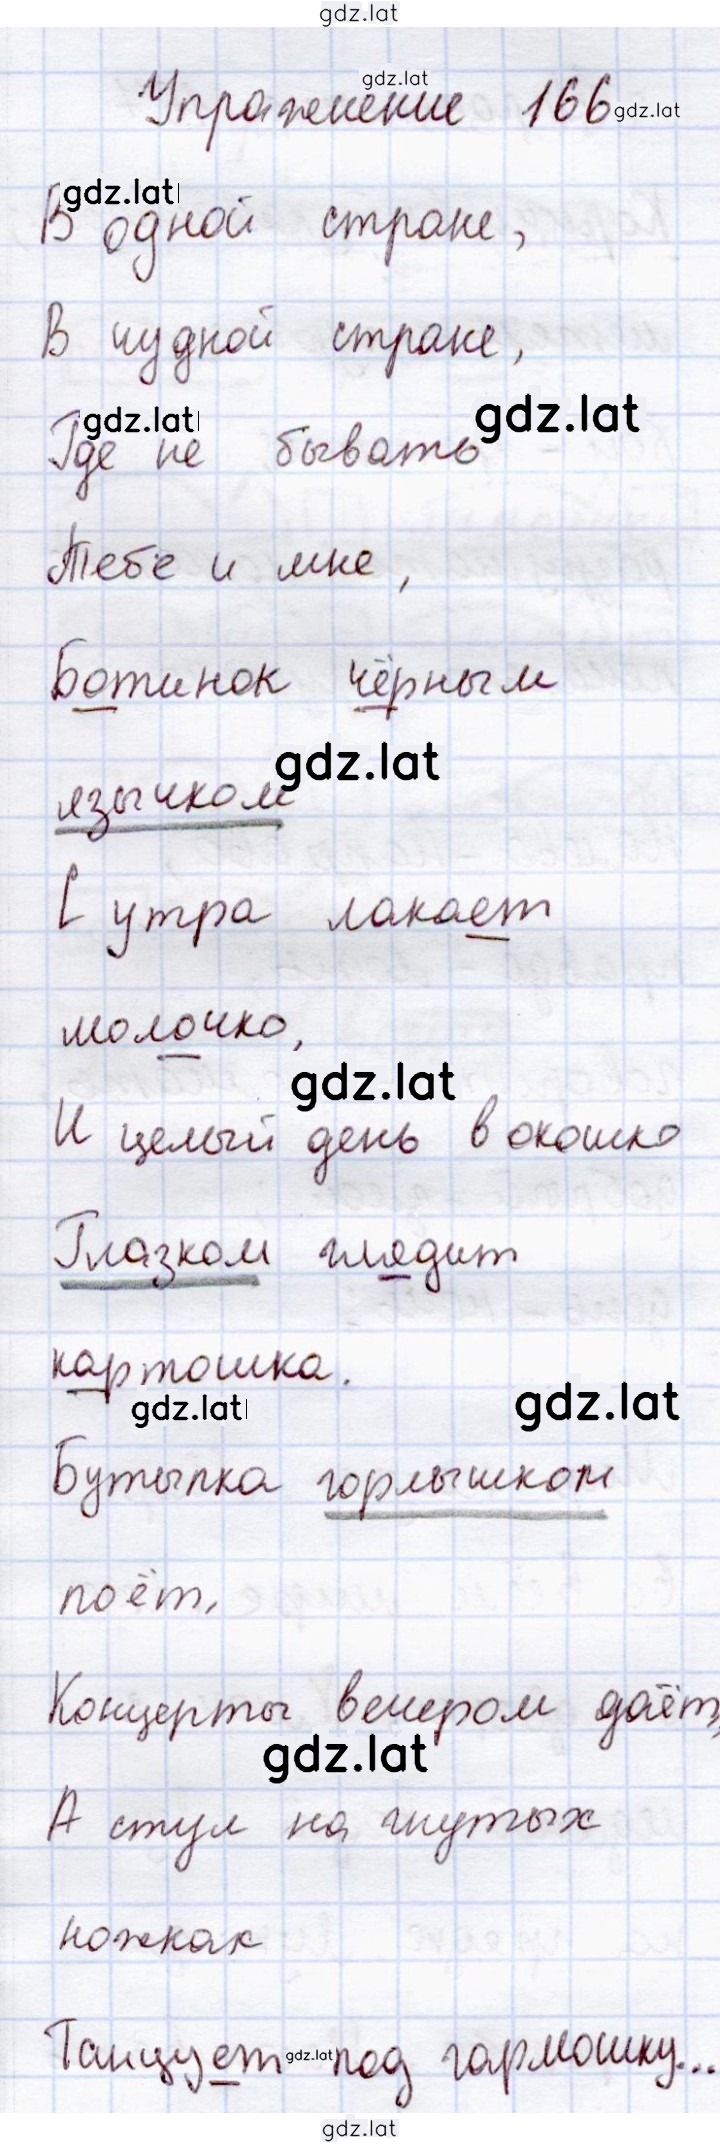 gdz.lat
gdz.lat
Упражнение 166
gdz.lat
gdz.lat
В одной стране,
В чудной стране,
gdz.lat
gdz.lat
Где не бывать
Тебе и мне,
Ботинок чёрным
gdz.lat
язычком
С утра лакает
молочко,
gdz.lat
И целый день в окошко
Глазком глядит
картошка.
gdz.lat
gdz.lat
Бутылка горлышком
поёт,
Концерты вечером даёт,
gdz.lat
А стул на гнутых
ножках
Танцует под гармошку...
gdz.lat
gdz.lat